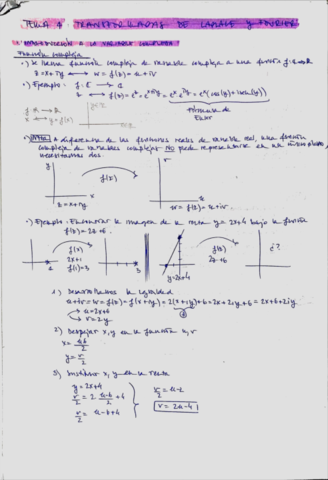 TEMA 4 TRANSFORMADAS DE LAPLACE Y FOURIER
INTRODUCCIÓN A LA VARIABLE COMPLEJA
Función compleja
•) Se llama función compleja de variable compleja a una función f:
z=x+iy → w=f(z)=u+iv
•) Ejemplo: f: ℂ → ℂ
z → f(z)=e^z=e^{x+iy}=e^x e^{iy}=e^x(cos(y)+isen(y))
Fórmula de
Euler
x → y=f(x)
•) Nota: a diferencia de las funciones reales de variable real, una función
compleja de variable compleja NO puede representarse en un mismo plano,
necesitamos dos.
y
v
f(z)
x
z=x+iy
w=f(z)=u+iv
•) Ejemplo: Encontrar la imagen de la recta y=2x+4 bajo la función
f(z)=2z+6.
f(x)
2x+1
f(1)=3
3
y=2x+4
f(z)
2z+6
¿?
1) Desarrollamos la igualdad
u+iv=w=f(z)=f(x+iy)=2(x+iy)+6=2x+2iy+6=2x+6+2iy
→ u=2x+6
→ v=2y
2) Despejar x, y en función u, v
x=(u-6)/2
y=v/2
3) Sustituir x, y en la recta
y=2x+4
v/2=2·(u-6)/2+4
v/2=u-6+4
v/2=u-2
v=2u-4